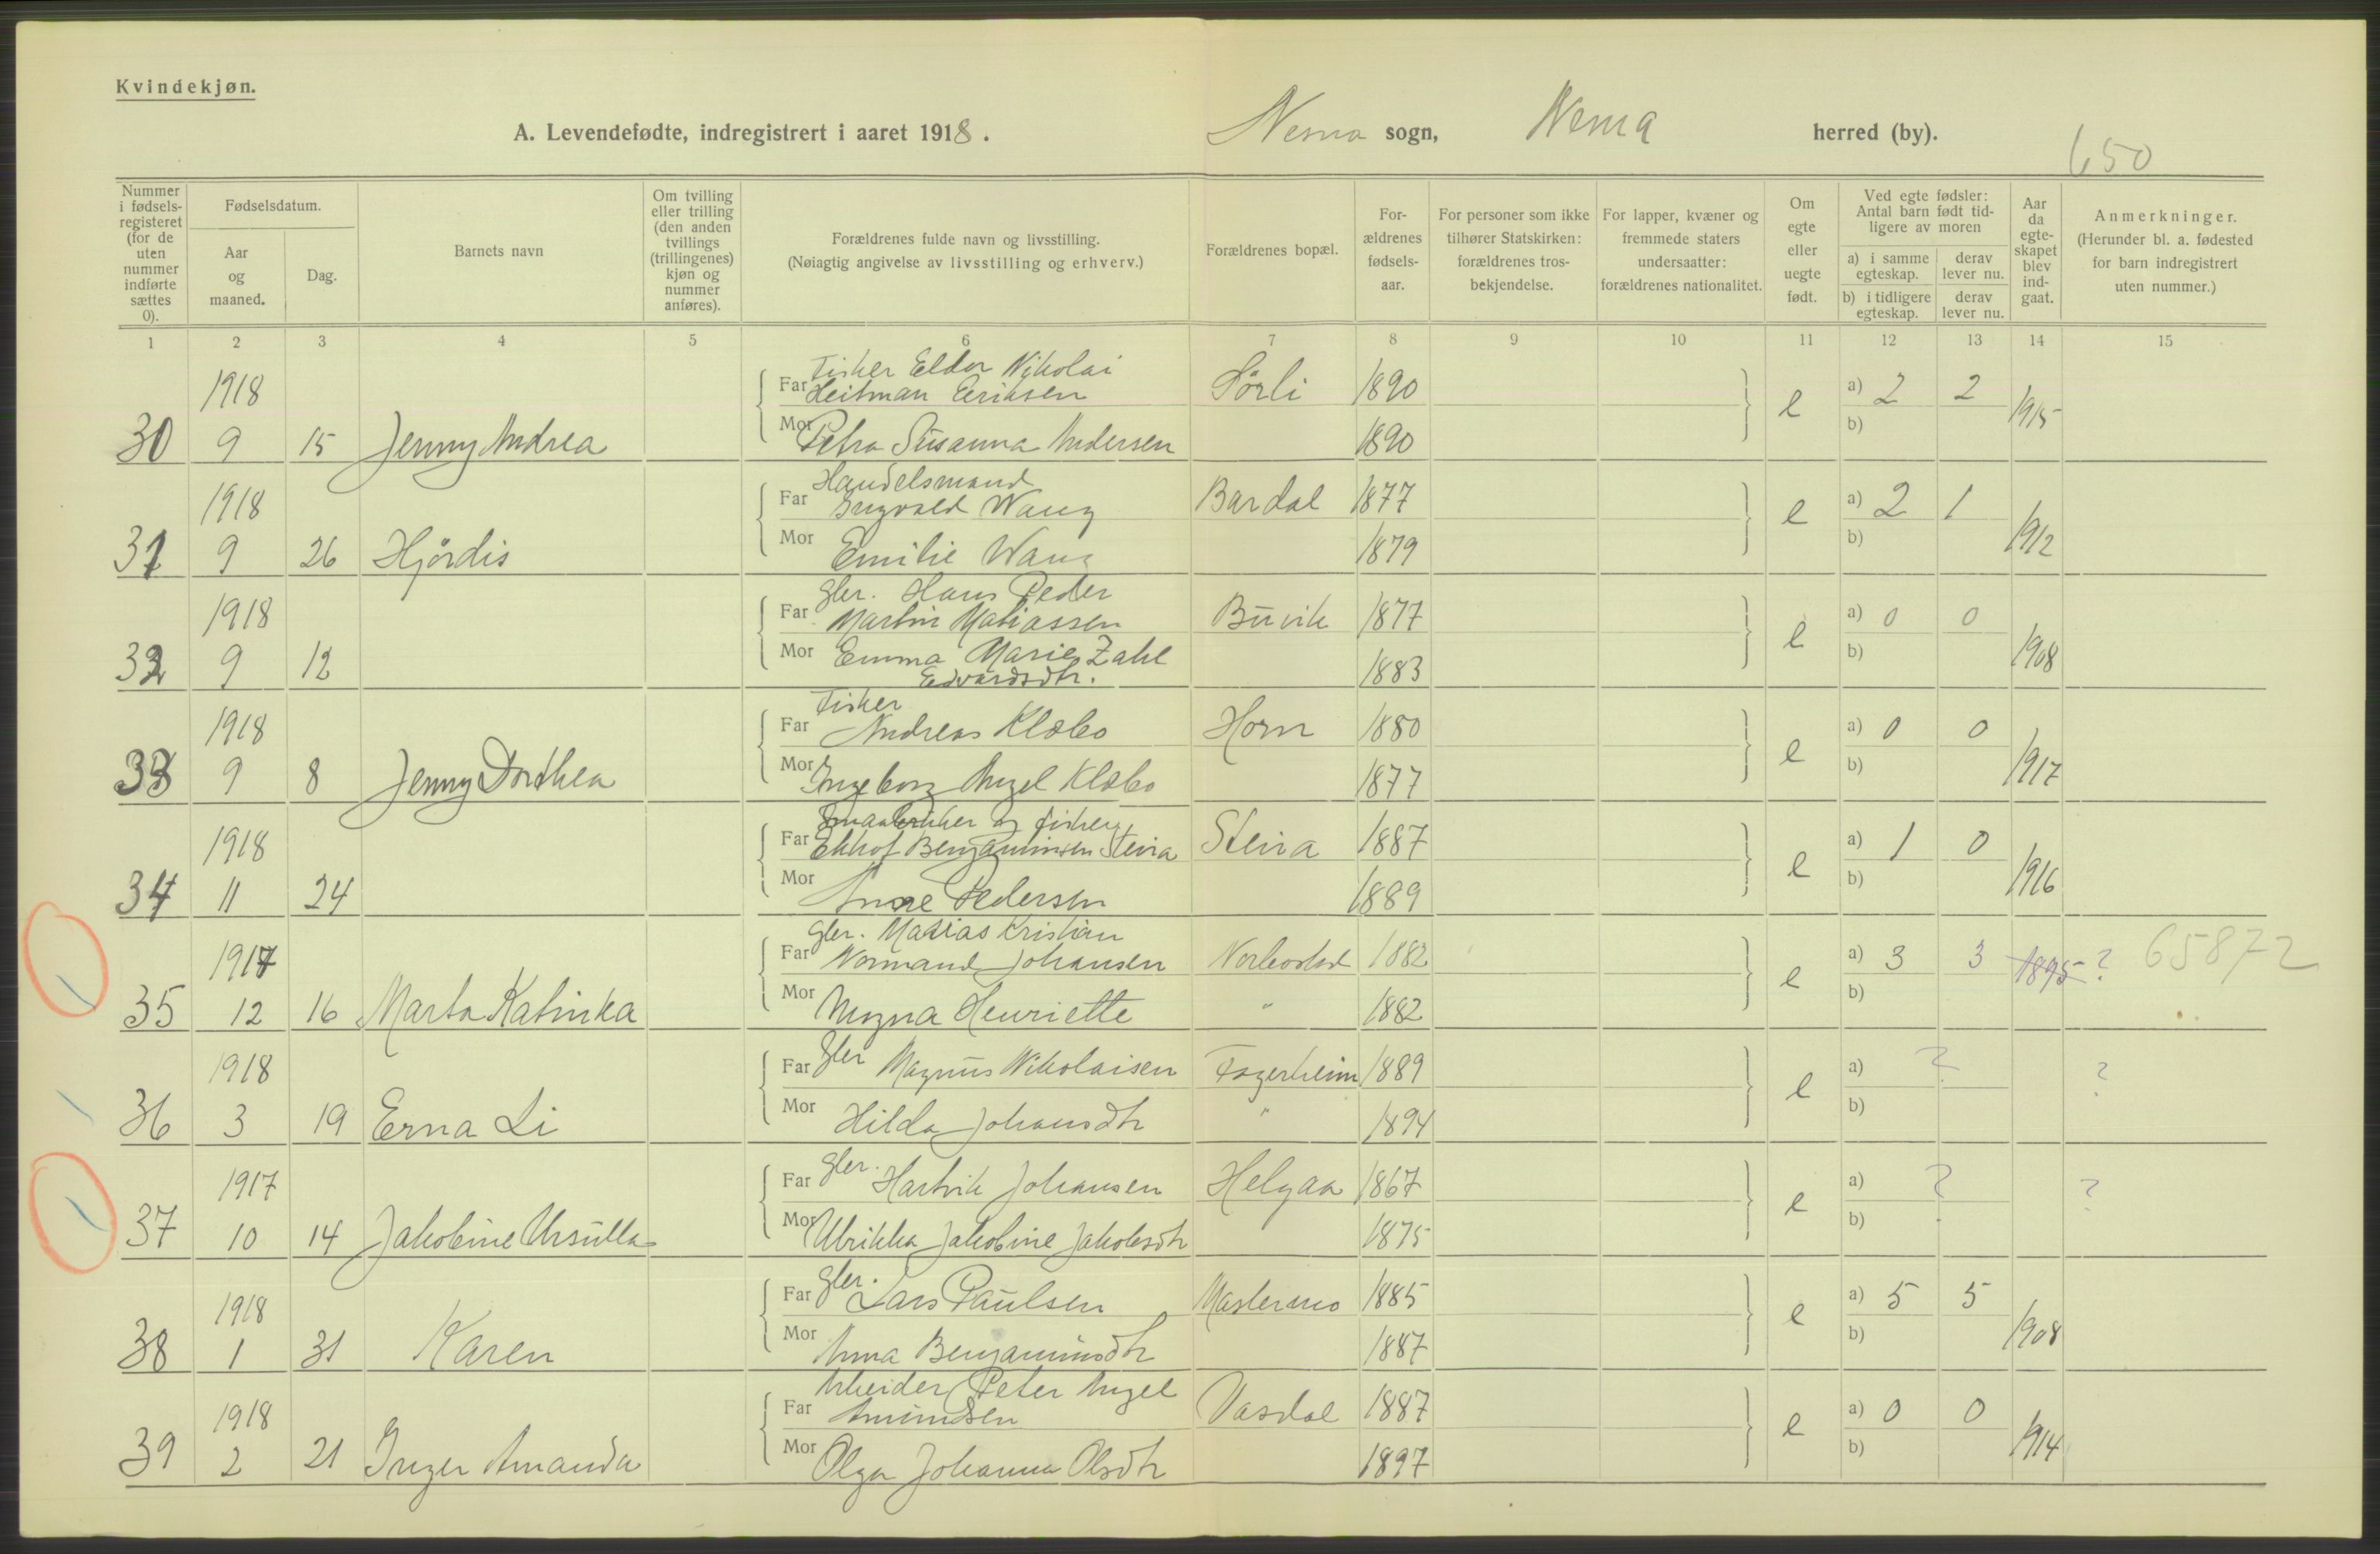 Kvindekjøn.
A. Levendefødte, indregistrert i aaret 1918.
Nesna sogn, Nesna herred (by).
650
Nummer i fødsels-registeret (for de uten nummer indførte sættes 0).
Fødselsdatum.
Aar og maaned.
Dag.
Barnets navn
Om tvilling eller trilling (den anden tvillings (trillingenes) kjøn og nummer anføres).
Forældrenes fulde navn og livsstilling.
(Nøiagtig angivelse av livsstilling og erhverv.)
Forældrenes bopæl.
For-ældrenes fødsels-aar.
For personer som ikke tilhører Statskirken: forældrenes tros-bekjendelse.
For lapper, kvæner og fremmede staters undersaatter: forældrenes nationalitet.
Om egte eller uegte født.
Ved egte fødsler: Antal barn født tid-ligere av moren
a) i samme egteskap.
derav lever nu.
b) i tidligere egteskap.
derav lever nu.
Aar da egte-skapet blev ind-gaat.
Anmerkninger.
(Herunder bl. a. fødested for barn indregistrert uten nummer.)
1 2 3 4 5 6 7 8 9 10 11 12 13 14 15
Fisker Eldor Nikolai
1918 Far Heitman Eriksen Sörli 1890 e a) 2 2 1915
30 9 15 Jenny Andrea Mor Petra Susanna Andersen 1890 b)
Handelsmand
1918 Far Ingvald Wang Bardal 1877 e a) 2 1 1912
31 9 26 Hjördis Mor Emilie Wang 1879 b)
gbr. Hans Peder
1918 Far Martin Matiassen Buvik 1877 e a) 0 0 1908
32 9 12 Mor Emma Marie Zahl 1883 b)
Edvardsdtr.
Fisker
1918 Far Andreas Klæbo Horn 1880 e a) 0 0 1917
33 9 8 Jenny Dorthea Mor Ingeborg Angel Klæbo 1877 b)
Smaabruker og fisker
1918 Far Ekhof Benjaminsen Steira Steira 1887 e a) 1 0 1916
34 11 24 Mor Anne Pedersen 1889 b)
gbr. Matias Kristian
1917 Far Normand Johansen 1882 e a) 3 3 1895 ? 65872
35 12 16 Marta Katinka Mor Magna Henriette " 1882 b)
1918 Far gbr Magnus Nikolaisen Fagerheim 1889 e a) ? ?
36 3 19 Erna Li Mor Hilda Johansdtr " 1894 b)
1917 Far gbr. Hartvik Johansen Helgaa 1867 e a) ? ?
37 10 14 Jakobine Ursulla Mor Ulrikka Jakobine Jakobsdtr 1875 b)
1918 Far gbr. Lars Paulsen Mastermo 1885 e a) 5 5 1908
38 1 31 Karen Mor Anna Benjaminsdtr 1887 b)
Arbeider Peter Angel
1918 Far Amundsen Vasdal 1887 e a) 0 0 1914
39 2 21 Inger Amanda Mor Olga Johanna Olsdtr 1897 b)